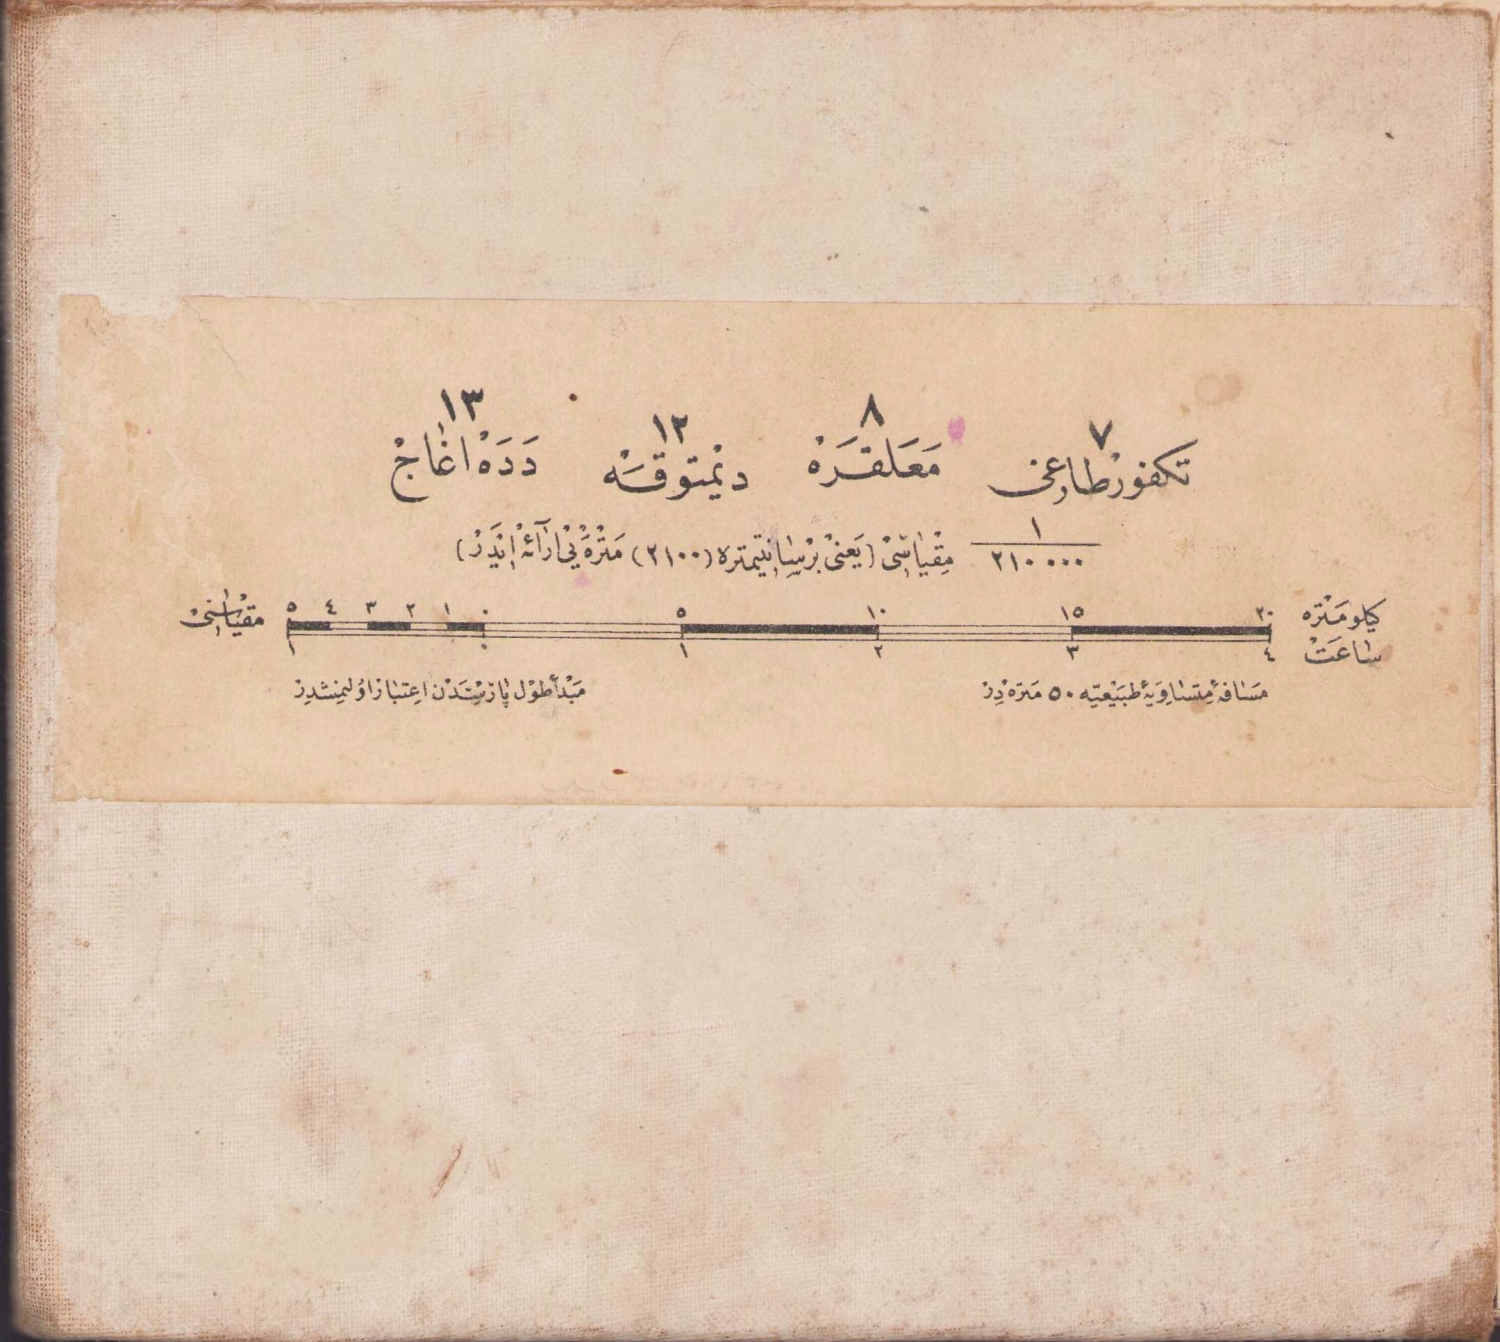 ٧ ٨ ١٢ ١٣
تكفورطاغی معلقره ديمتوقه دده اغاج
١
٢١٠٠٠٠ مقياسی (يعنی بر سانتيمتره (٢١٠٠) متره يی ارائه ايدر)
كيلومتره ٢٠ ١٥ ١٠ ٥ ٠ ١ ٢ ٣ ٤ ٥ مقياسی
ساعت ٤ ٣ ٢ ١ ٠ ١
مسافهٔ متساويهٔ طبيعيه ٥٠ متره در
مبدأ طول پارستدن اعتبار اولنمشدر